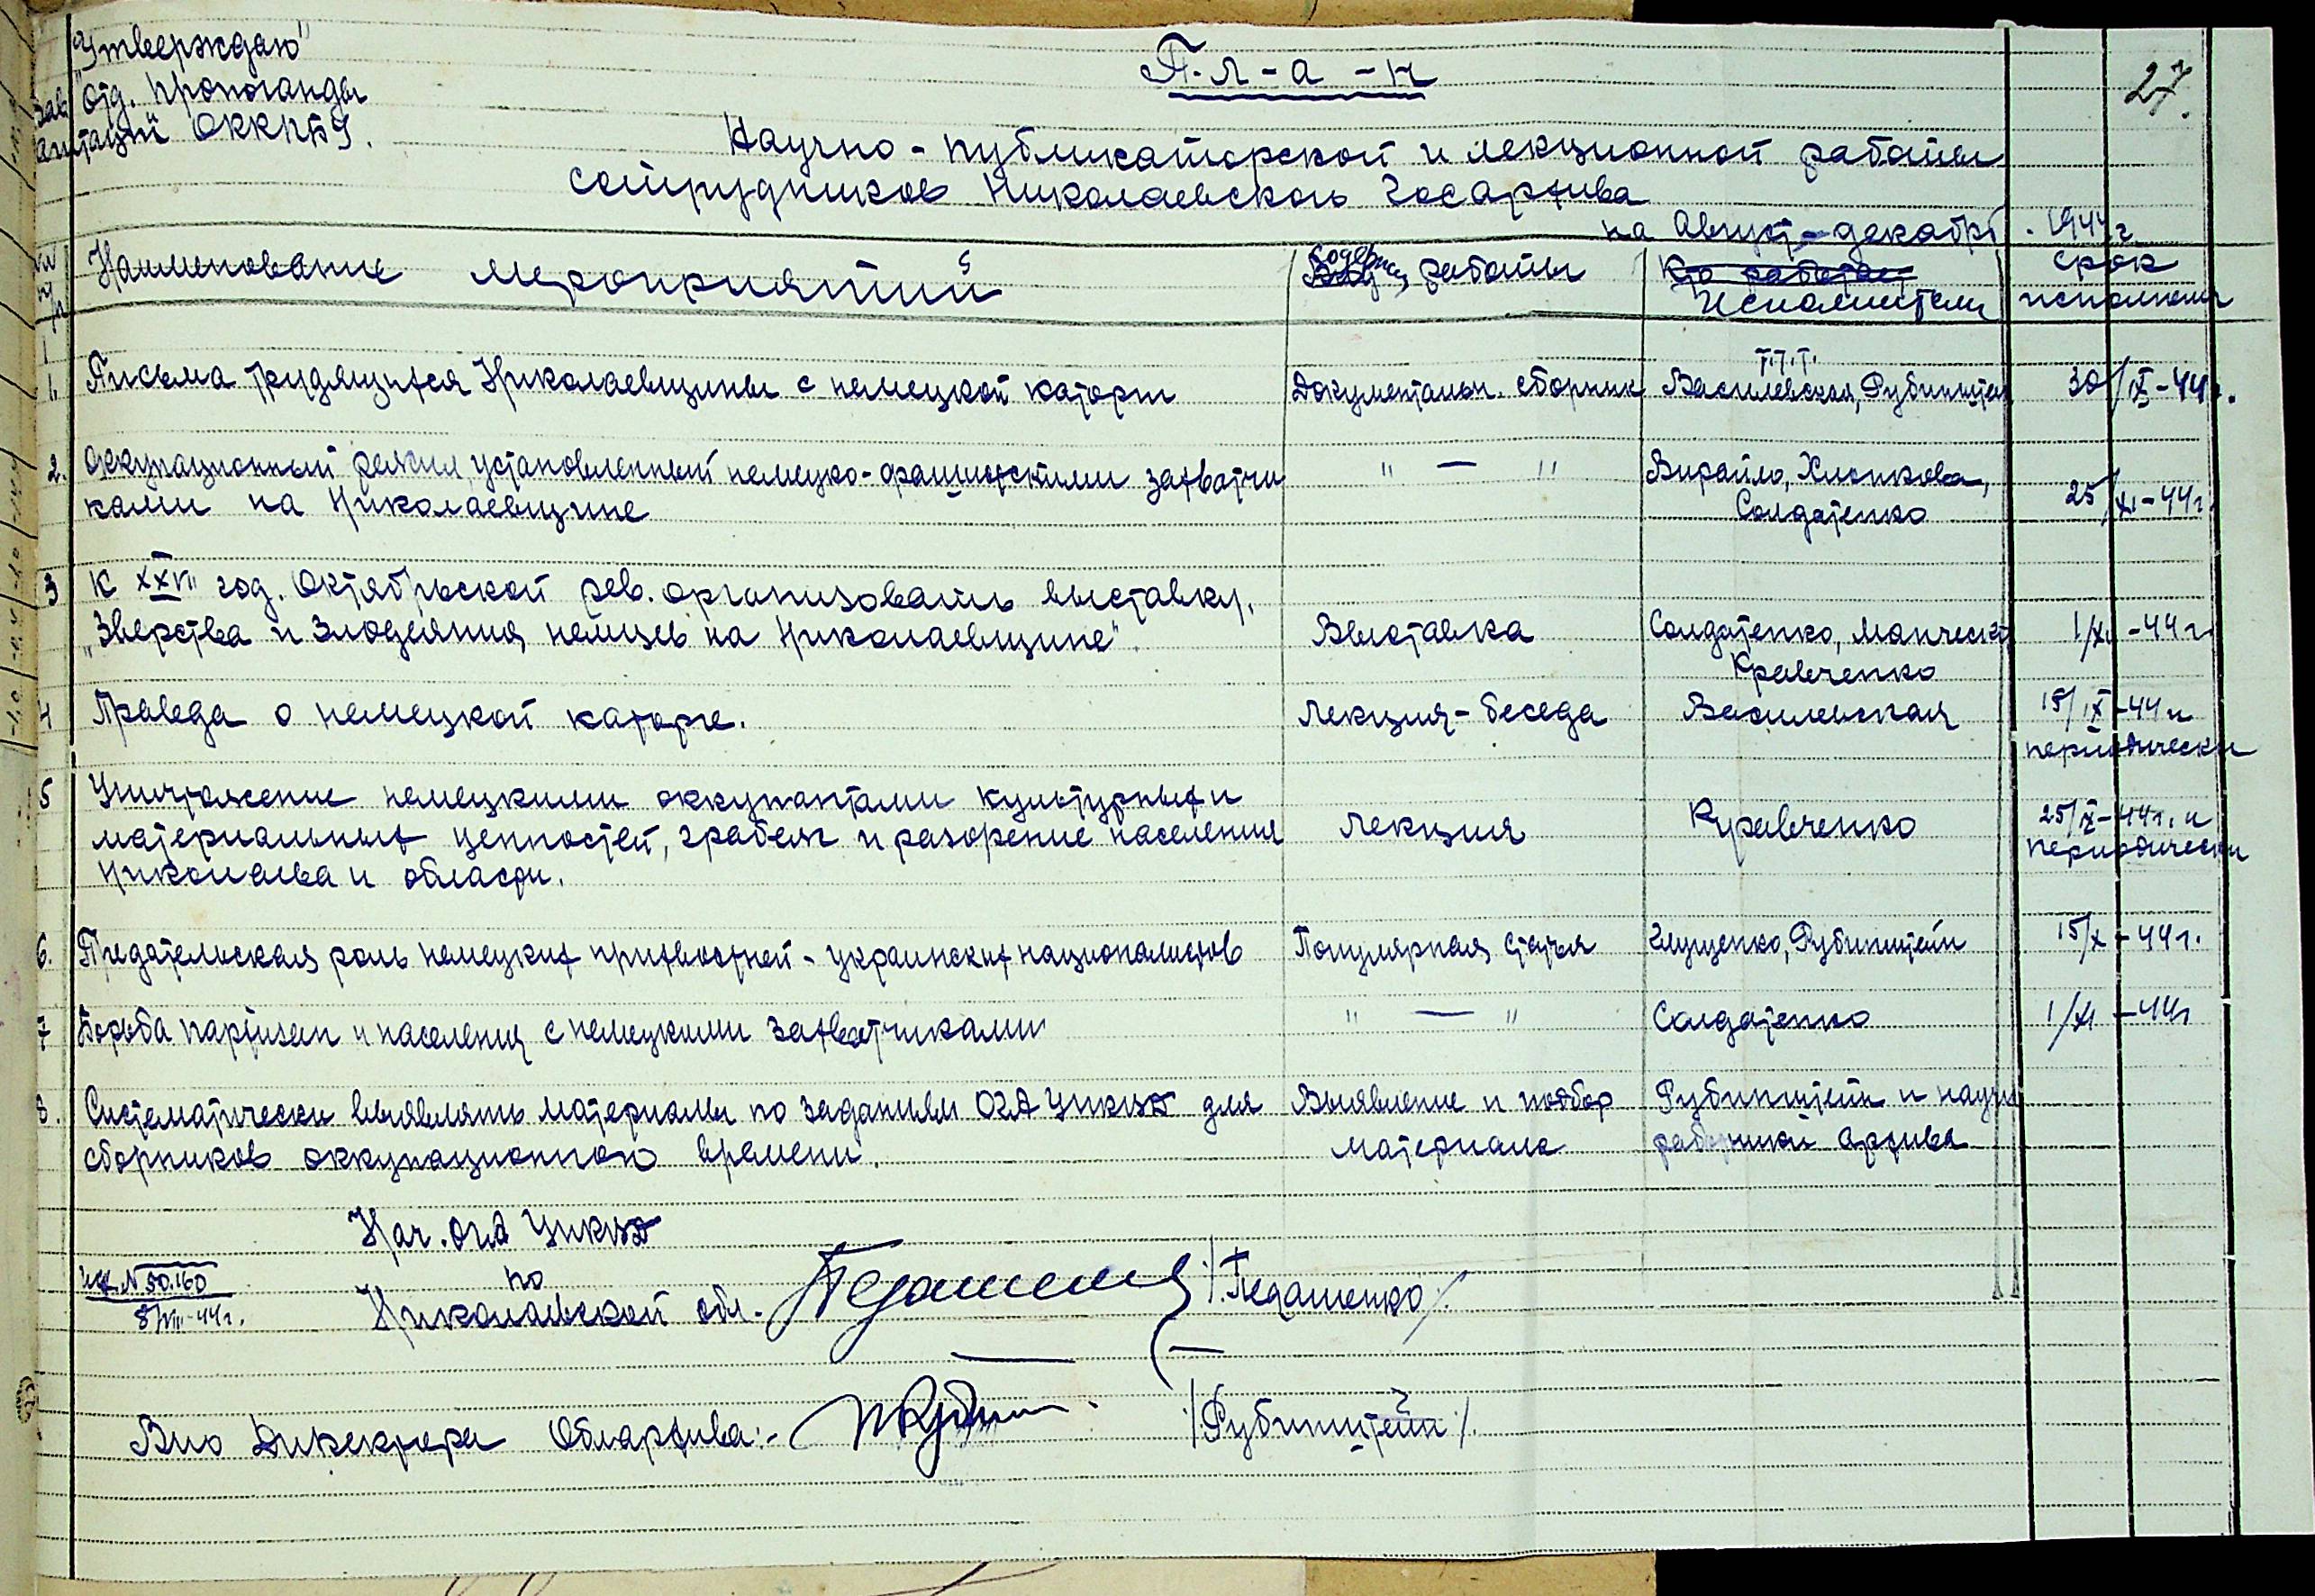 "Утверждаю"
Зав. Отд. Пропоганды
Агитаций ОККПбУ.
27.
П-л-а-н
Научно-публикаторской и лекционной работы
сотрудников Николаевского Госархива
на Август-декабрь 1944 г.
№ п/п Наименование мероприятий Содерж. работы Исполнители Срок исполнения
1. Письма трудящихся Николаевщины с немецкой каторги Документальн. сборник т.т.т. Василевская, Рубинштейн 30/IX-44 г.
2. Оккупационный режим, установленный немецко-фашистскими захватчи
ками на Николаевщине " — " Вирайло, Хлопкова,
Солдатенко 25/XI-44 г.
3 К XXVII год. Октябрьской рев. организовать выставку.
"Зверства и злодеяния немцев на Николаевщине". Выставка Солдатенко, Манческ
Кравченко 1/XI-44 г.
4 Правда о немецкой каторге. Лекция-беседа Василевская 15/IX-44 и
периодически
5 Уничтожение немецкими оккупантами культурных и
материальных ценностей, грабеж и разорение населения
Николаева и области. Лекция Кравченко 25/IX-44 г. и
периодически
6. Предательская роль немецких прихвостней - украинских националистов Популярная статья Глущенко, Рубинштейн 15/X-44 г.
7 Борьба партизан и населения с немецкими захватчиками " — " Солдатенко 1/XI-44 г
8. Систематически выявлять материалы по заданиям ОГА УНКВД для Выявление и подбор Рубинштейн и научн
сборников оккупационного времени. материала работники архива
Нач. ОГА УНКВД
по
Николаевской обл. /Педашенко/.
Исх. №50.160
8/VIII-44 г.
Врио Дикектора Облархива:- /Рубинштейн/.